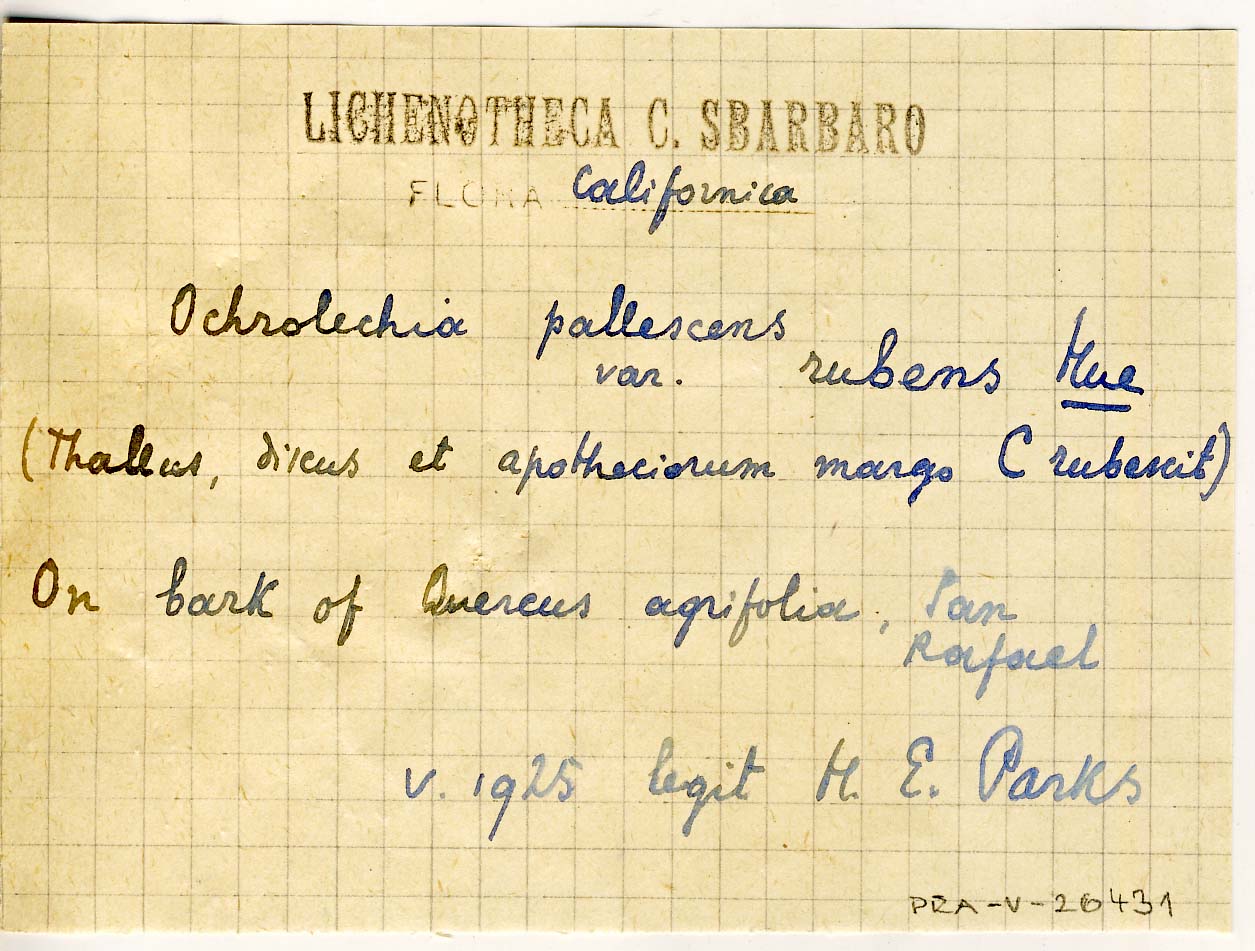 LICHENOTHECA C. SBARBARO
FLORA Californica
Ochrolechia pallescens
var. rubens Hue
(Thallus, discus et apotheciorum margo C rubescit)
On bark of Quercus agrifolia, San
Rafael
V. 1925 legit H. E. Parks
PRA-V-26431